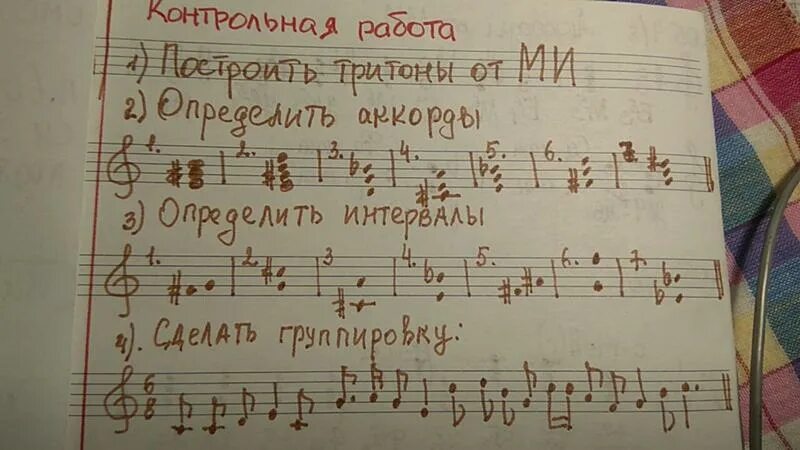 Контрольная работа
1) Построить тритоны от МИ
2) Определить аккорды
1. 2. 3. 4. 5. 6. 7.
3) Определить интервалы
1. 2. 3 4. 5. 6. 7.
4). Сделать группировку:
6
8